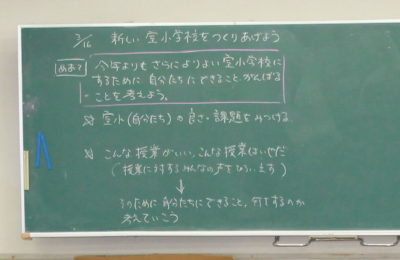 3/16 新しい室小学校をつくりあげよう
めあて 今年よりもさらによりよい室小学校に
するために自分たちにできること、がんばる
ことを考えよう。
室小(自分たち)の良さ・課題をみつける
こんな授業がいい、こんな授業はいやだ
(授業に対するみんなの声をひろいます)
↓
そのために自分たちにできること、何をするのか
考えていこう